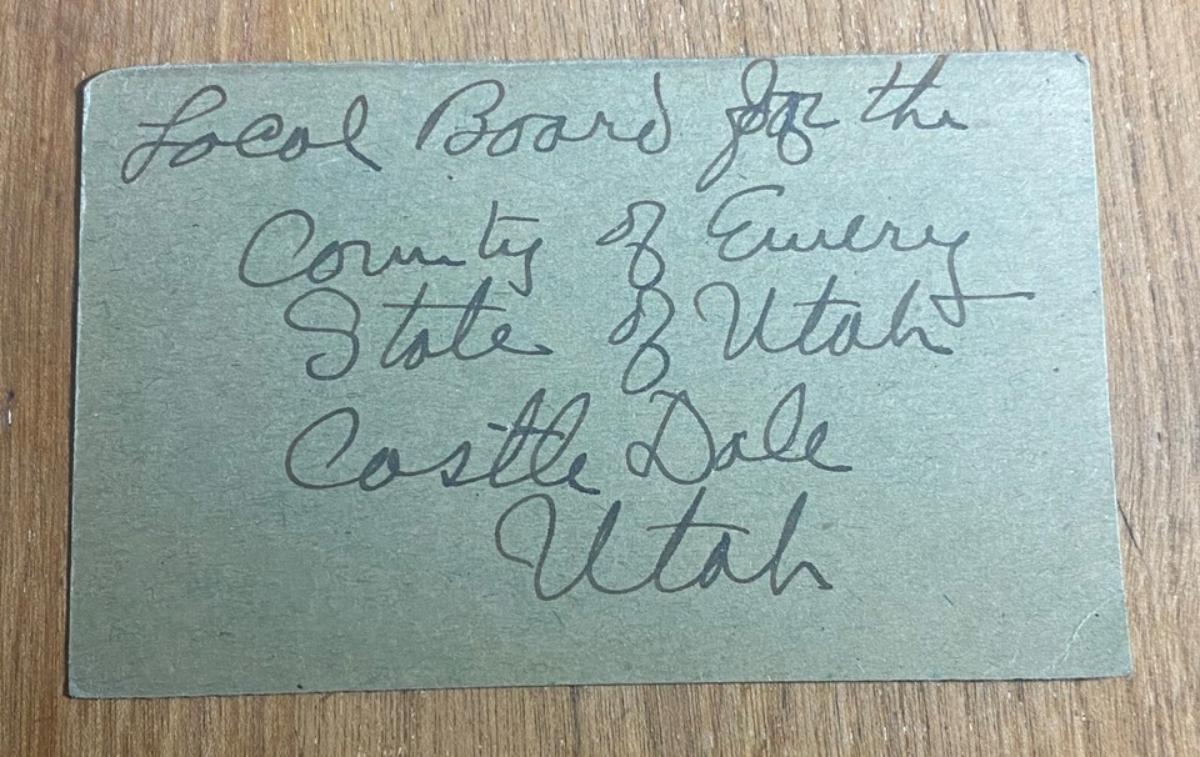 Local Board for the
County of Emery
State of Utah
Castle Dale
Utah